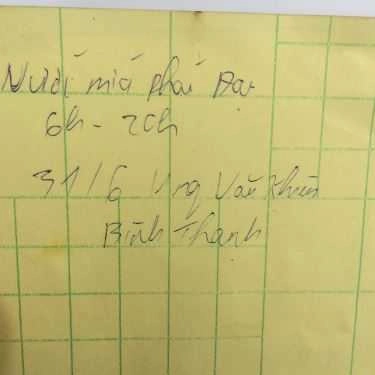 Nước mía phát Đạt
6h - 20h
31/6 Ung Văn Khiêm
Bình Thạnh